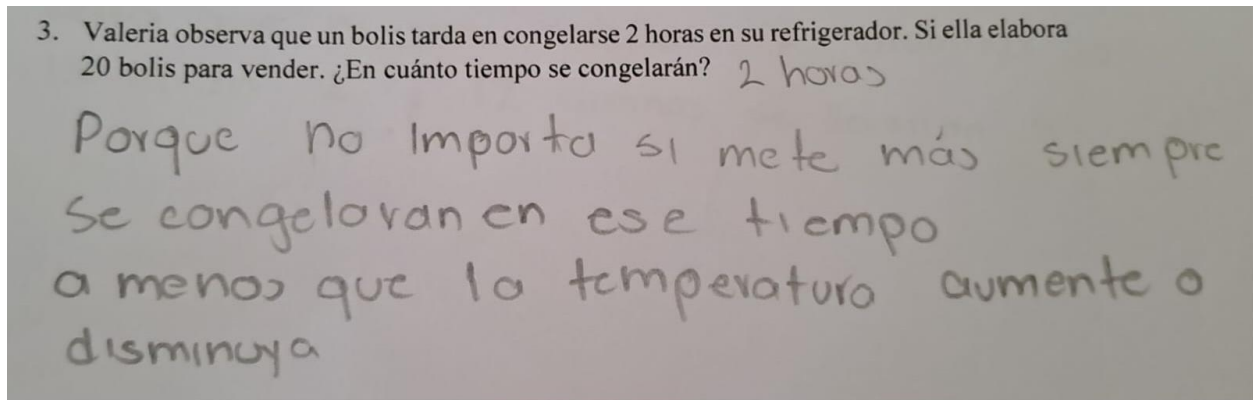 3. Valeria observa que un bolis tarda en congelarse 2 horas en su refrigerador. Si ella elabora
20 bolis para vender. ¿En cuánto tiempo se congelarán? 2 horas
Porque no Importa si mete más siempre
Se congelaran en ese tiempo
a menos que la temperatura aumente o
disminuya